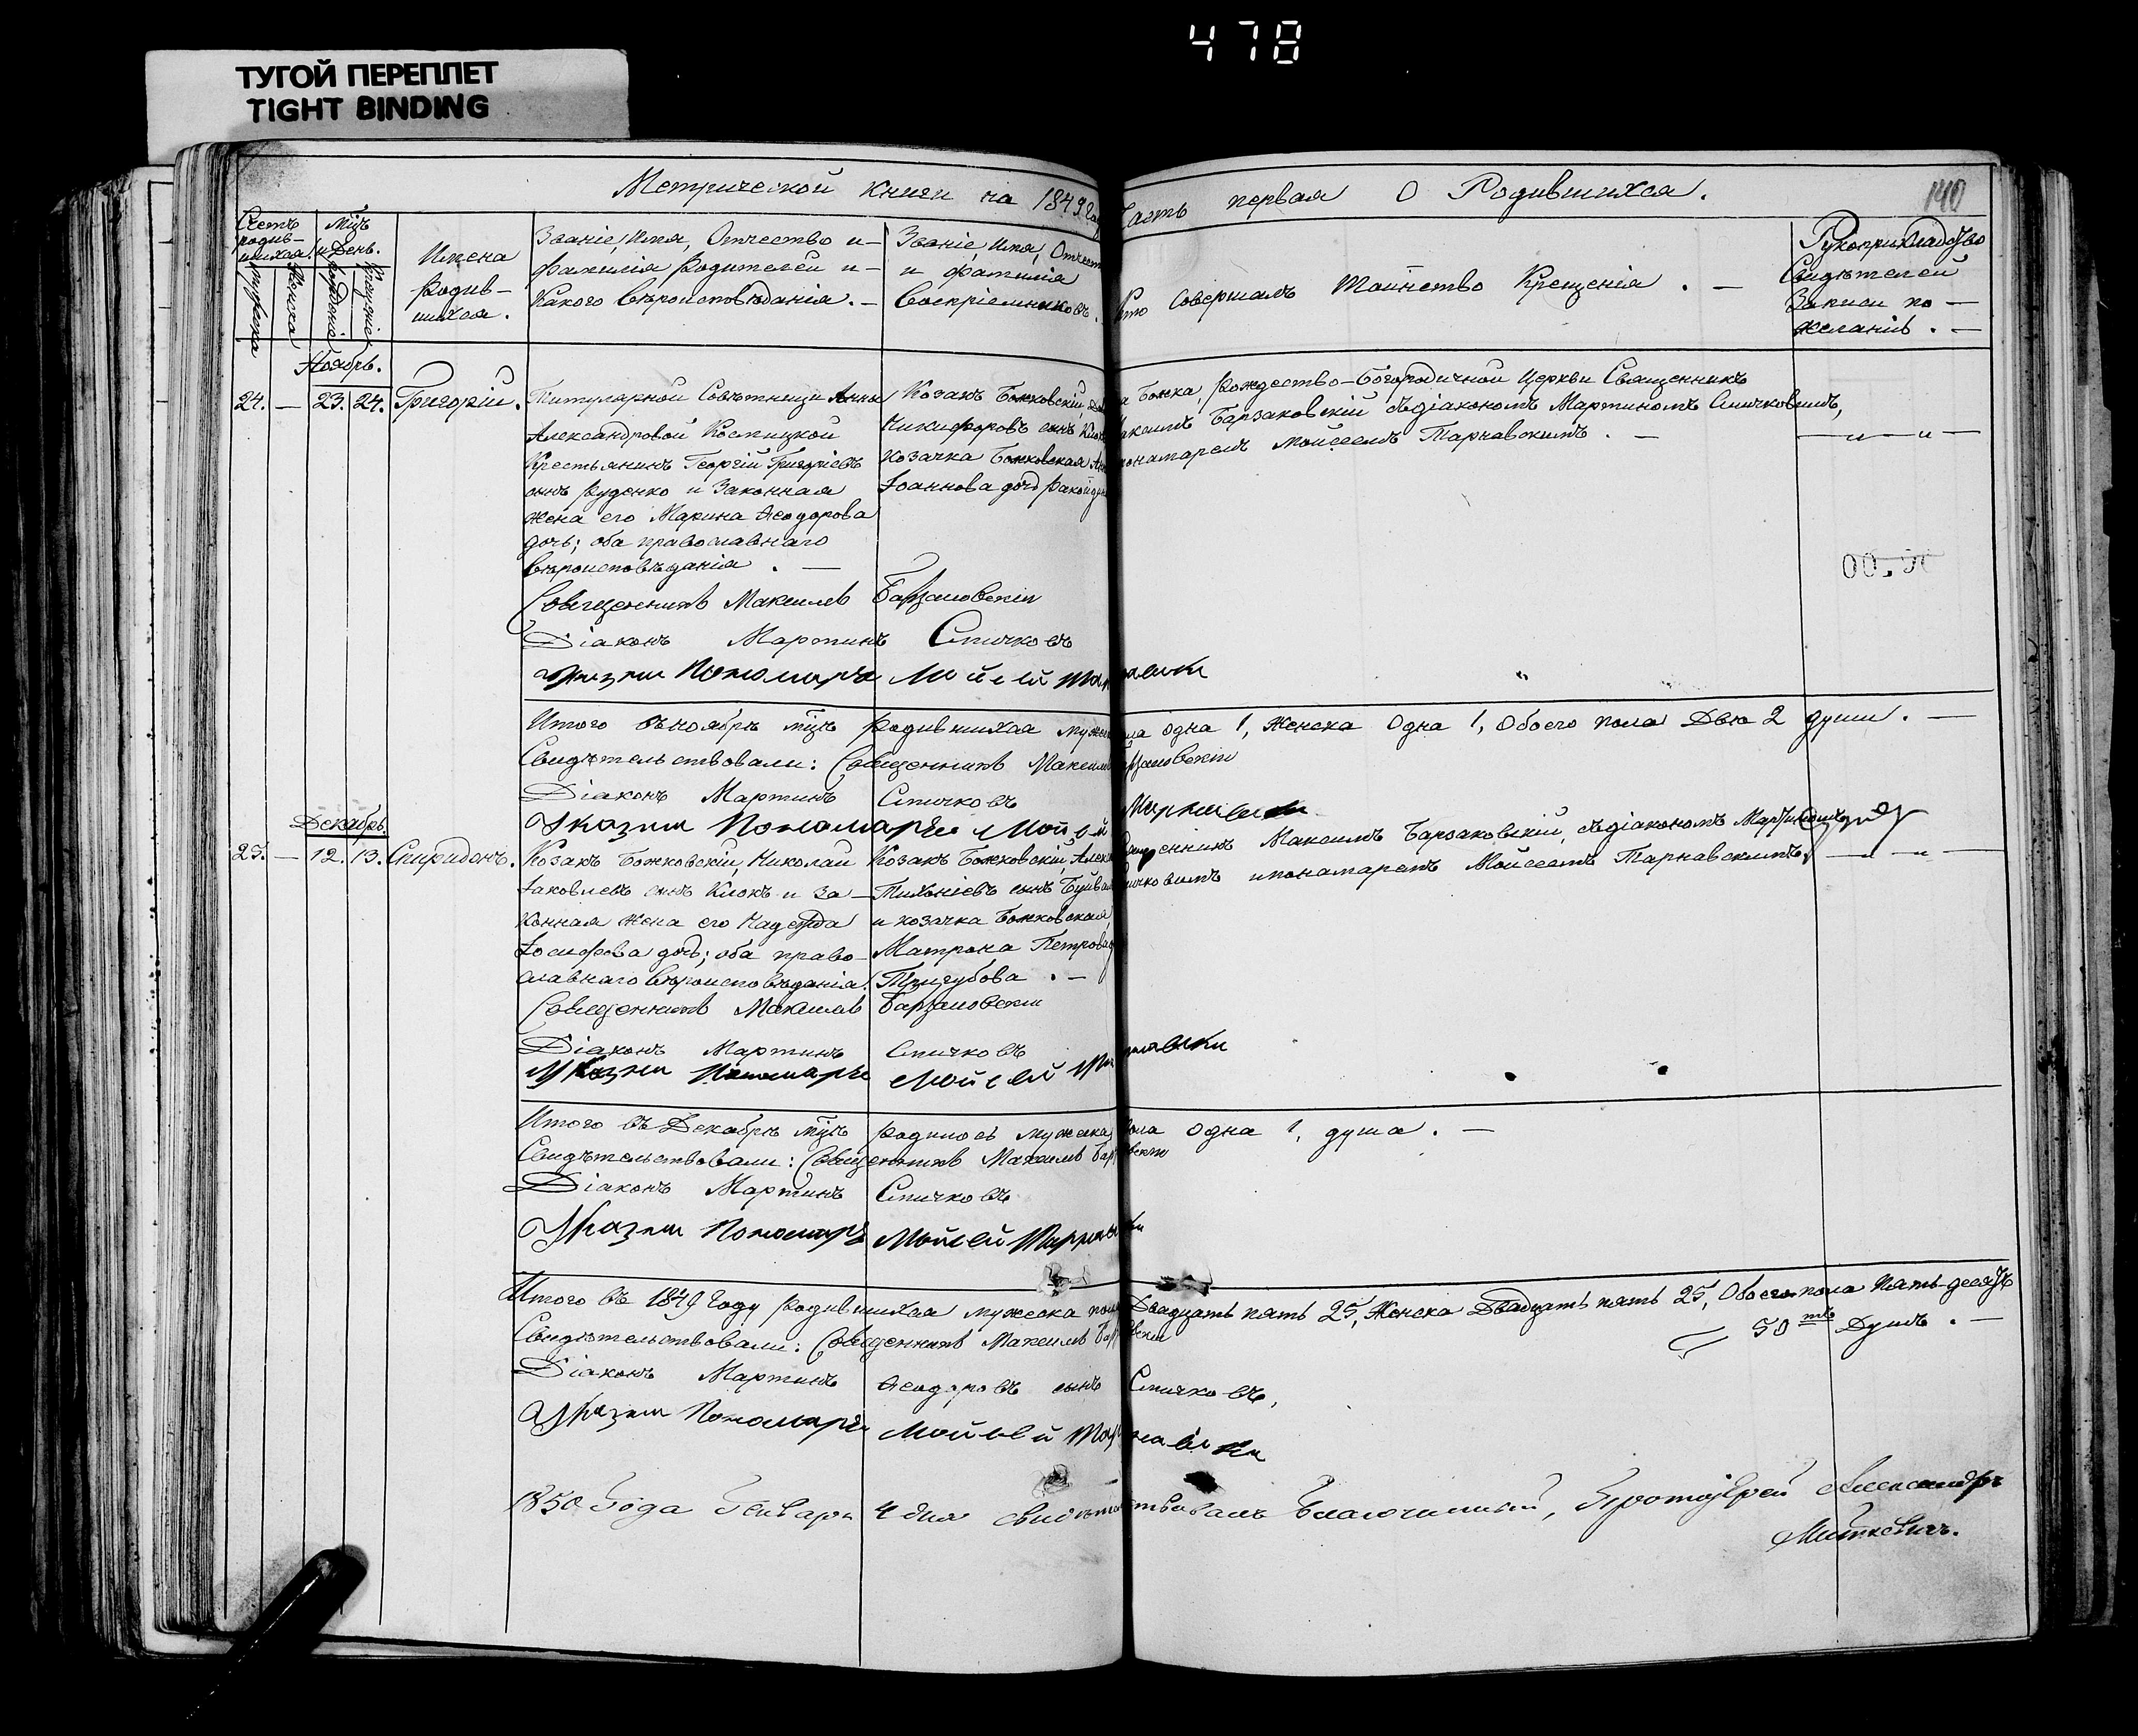 478
ТУГОЙ ПЕРЕПЛЕТ
TIGHT BINDING
Метрической книги на 1849 Годъ Часть первая О Родившихся.
140
Счетъ родив-шихся.
мужеска
женска
Мц̃ъ и День.
рожденіе
крещеніе
Имена
Родив-
шихся.
Званіе, Имя, Отчество и-
Фамилія Родителей и-
Какого вѣроисповѣданія. -
Званіе, Имя, Отчест
и фамилія
Воспріемниковъ.
Кто Совершалъ Таинство Крещенія. -
Рукоприкладство
Свидѣтелей
Записи по -
желанію. -
Ноябрь.
24. - 23. 24. Григорій.
Титулярной Совѣтницы Анны
Александровой
Крестьянинъ Георгій Григоріевъ
сынъ Руденко и Законная
жена его Марина Ѳеодорова
дочь; оба православнаго
вѣроисповѣданія. -
Козакъ Божковскій
Никифоровъ сынъ
козачка Божковская
Іоаннова дочь
Божка, Рождество-Богородичной Церкви Священникъ
Максимъ Барзаковскій съ діакономъ Мартиномъ Спичковымъ,
пономаремъ Мойсеемъ Тарнавскимъ. -
Священникъ Максимъ Барзаковскій
Діаконъ Мартинъ Спичковъ
Указни Пономарь Мойсей Тарнавски
Итого въ ноябрѣ мц̃ѣ родившихся мужеска пола одна 1, Женска Одна 1, Обоего пола Двѣ 2 души. -
Свидѣтельствовали: Священникъ Максимъ Барзаковскій
Діаконъ Мартинъ Спичковъ
Указни Пономарь Мойсей Тарнавски
Декабрь.
25. - 12. 13. Спиридонъ.
Козакъ Божковскій, Николай
Іаковлевъ сынъ Клюкъ и За-
конная жена его Надежда
Іосифова дочь; оба право-
славнаго вѣроисповѣданія.
Козакъ Божковскій, Алекс
Тихоніевъ сынъ
и козачка Божковская
Матрона Петрова
Тригубова. -
Священникъ Максимъ Барзаковскій, съ діакономъ Мартиномъ
Спичковымъ и пономаремъ Мойсеемъ Тарнавскимъ.
Священникъ Максимъ Барзаковскій
Діаконъ Мартинъ Спичковъ
Указни Пономарь Мойсей Тарнавски
Итого въ Декабрѣ мц̃ѣ родилось мужеска пола одна 1, душа. -
Свидѣтельствовали: Священникъ Максимъ Барзаковскій
Діаконъ Мартинъ Спичковъ
Указни Пономарь Мойсей Тарнавски
Итого въ 1849 Году родившихся мужеска пола Двадцать пять 25, Женска Двадцать пять 25, Обоего пола Пять-десятъ
50 тъ Душъ. -
Свидѣтельствовали: Священникъ Максимъ Барзаковскій
Діаконъ Мартинъ Ѳеодоровъ сынъ Спичковъ,
Указни Пономарь Мойсей Тарнавски
1850 Года Генваря 4 дня свидѣтельствовалъ Благочинный, Протоіерей Александръ
Миткевичъ.